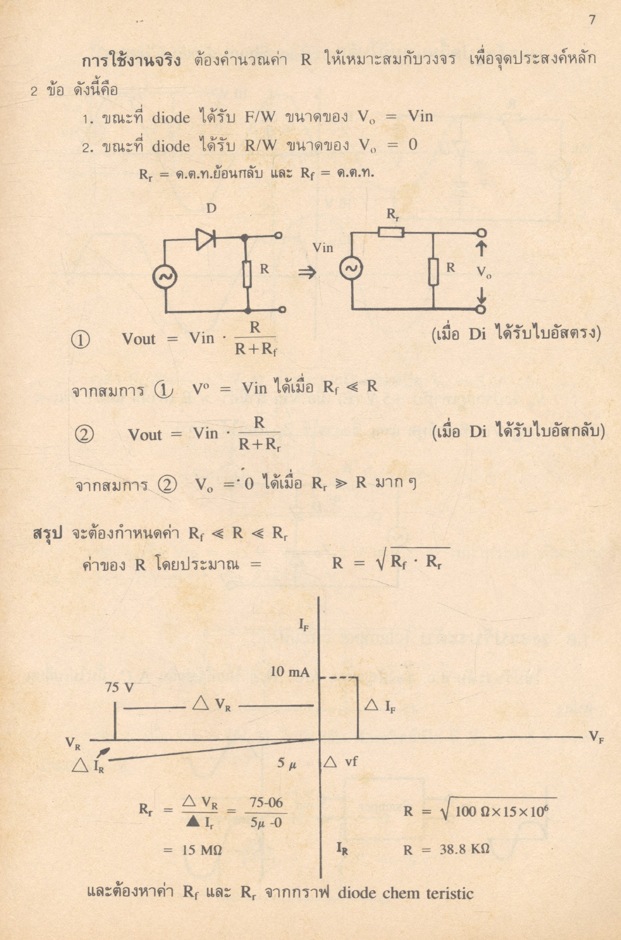 7
การใช้งานจริง ต้องคำนวณค่า R ให้เหมาะสมกับวงจร เพื่อจุดประสงค์หลัก
2 ข้อ ดังนี้คือ
1. ขณะที่ diode ได้รับ F/W ขนาดของ Vₒ = Vin
2. ขณะที่ diode ได้รับ R/W ขนาดของ Vₒ = 0
Rᵣ = ด.ต.ท.ย้อนกลับ และ R_f = ด.ต.ท.
D
R
⇒
Vin
Rᵣ
R
Vₒ
① Vout = Vin · R / (R+R_f) (เมื่อ Di ได้รับไบอัสตรง)
จากสมการ ① V° = Vin ได้เมื่อ R_f ≪ R
② Vout = Vin · R / (R+Rᵣ) (เมื่อ Di ได้รับไบอัสกลับ)
จากสมการ ② Vₒ = 0 ได้เมื่อ Rᵣ ≫ R มาก ๆ
สรุป จะต้องกำหนดค่า R_f ≪ R ≪ Rᵣ
ค่าของ R โดยประมาณ = R = √(R_f · Rᵣ)
I_F
10 mA
75 V
△ V_R
△ I_F
V_R
V_F
△ I_R
5 μ
△ vf
Rᵣ = △ V_R / ▲ Iᵣ = 75-06 / 5μ -0
R = √(100 Ω×15×10⁶)
= 15 MΩ
I_R
R = 38.8 KΩ
และต้องหาค่า R_f และ Rᵣ จากกราฟ diode chem teristic